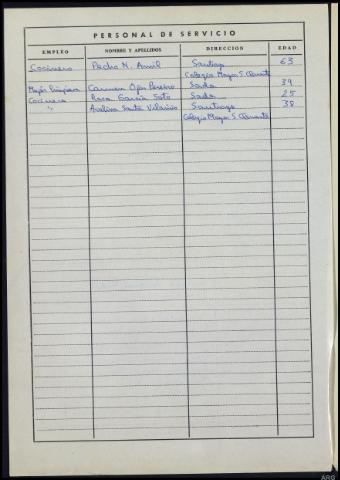 PERSONAL DE SERVICIO
EMPLEO NOMBRE Y APELLIDOS DIRECCION EDAD
Cocinero Pedro N. Santiago 63
Colegio Mayor S. Clemente
Mujer limpieza Carmen Pereiro Sada 39
Cocinera Rosa García Soto Sada 25
" Avelina Santiago 38
Colegio Mayor S. Clemente
ARG